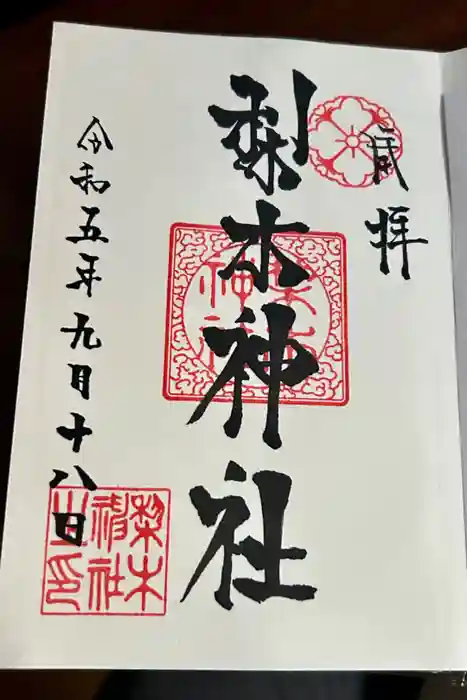 奉拝
梨木神社
令和五年九月十八日
梨木
神社
之印